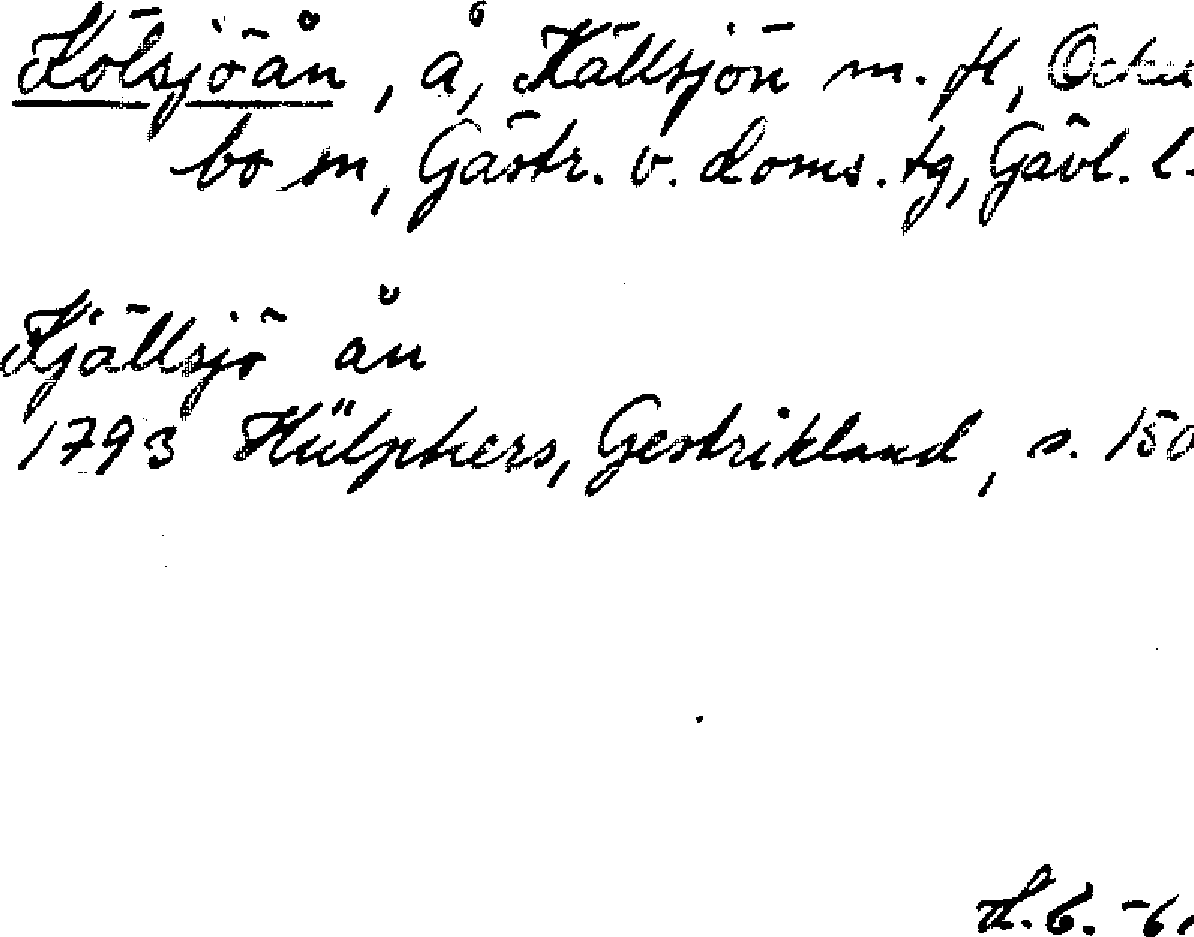 Kölsjöån, å, Källsjön m. fl, Ocku
bo sn, Gästr. v. doms. tg, Gävl. l.
Kjällsjö ån
1793 Hülphers, Gestrikland, s. 150
H.C. -6